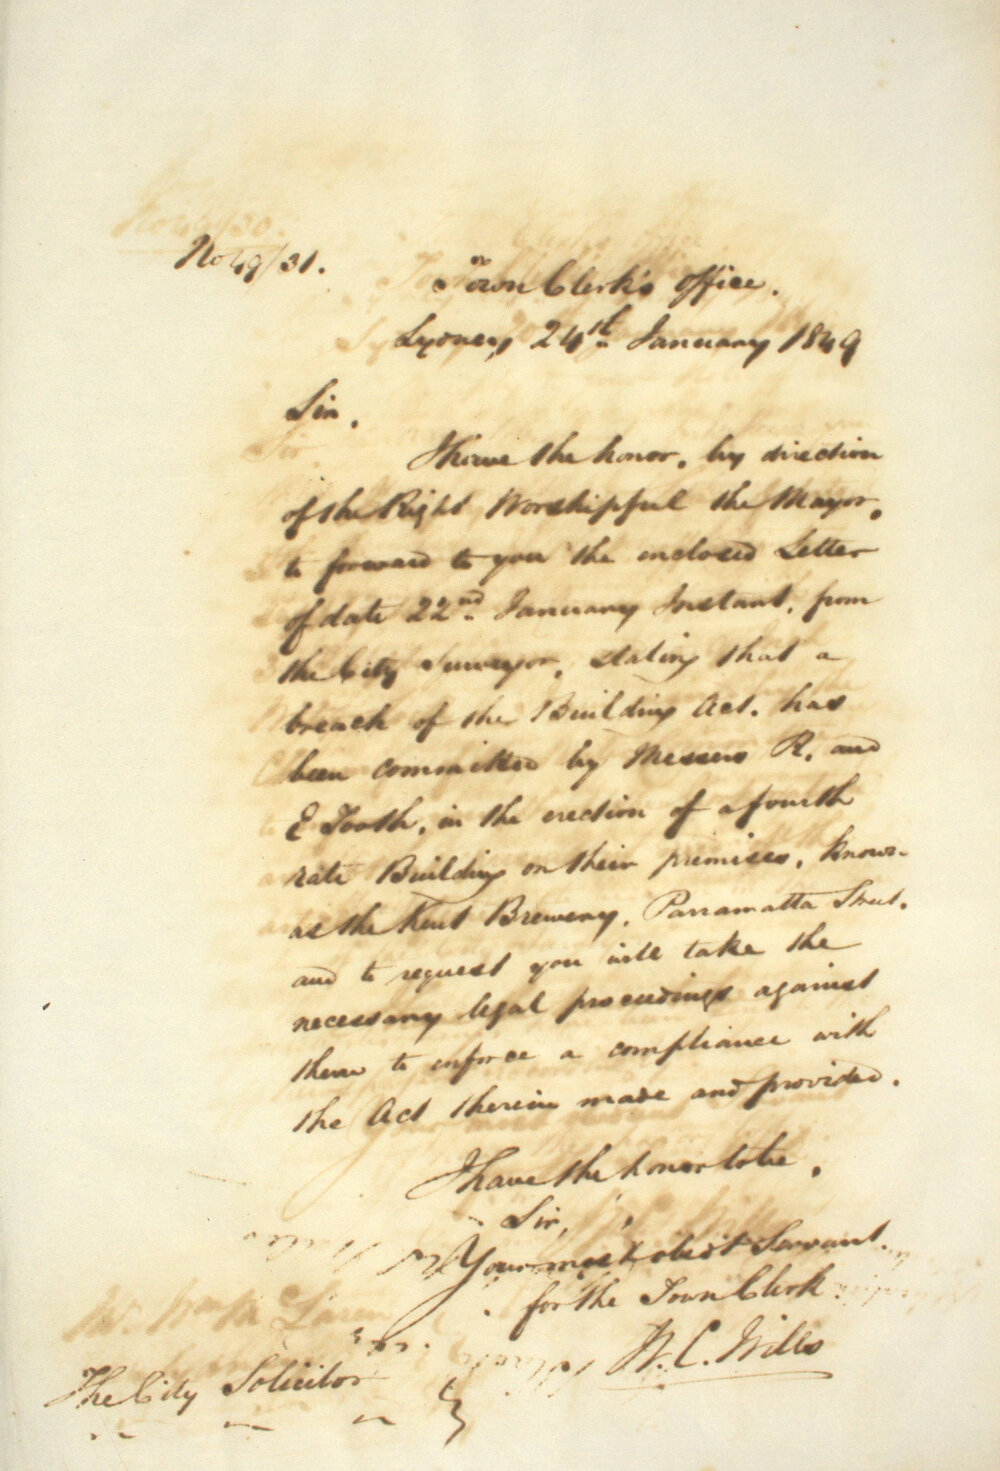 No 49/31.
Town Clerk's Office.
Sydney, 24th January 1849
Sir.
I have the honor, by direction
of the Right Worshipful the Mayor,
to forward to you the enclosed Letter
of date 22nd January Instant, from
the City Surveyor, stating that a
breach of the Building Act. has
been committed by Messers R. and
E Tooth, in the erection of a fourth
rate Building on their premises, known
as the Kent Brewery, Parramatta Street,
and to request you will take the
necessary legal proceedings against
them to enforce a compliance with
the Act therein made and provided.
I have the honor to be,
Sir,
Your most obedt Servant.
for the Town Clerk.
W. C. Wills
The City Solicitor